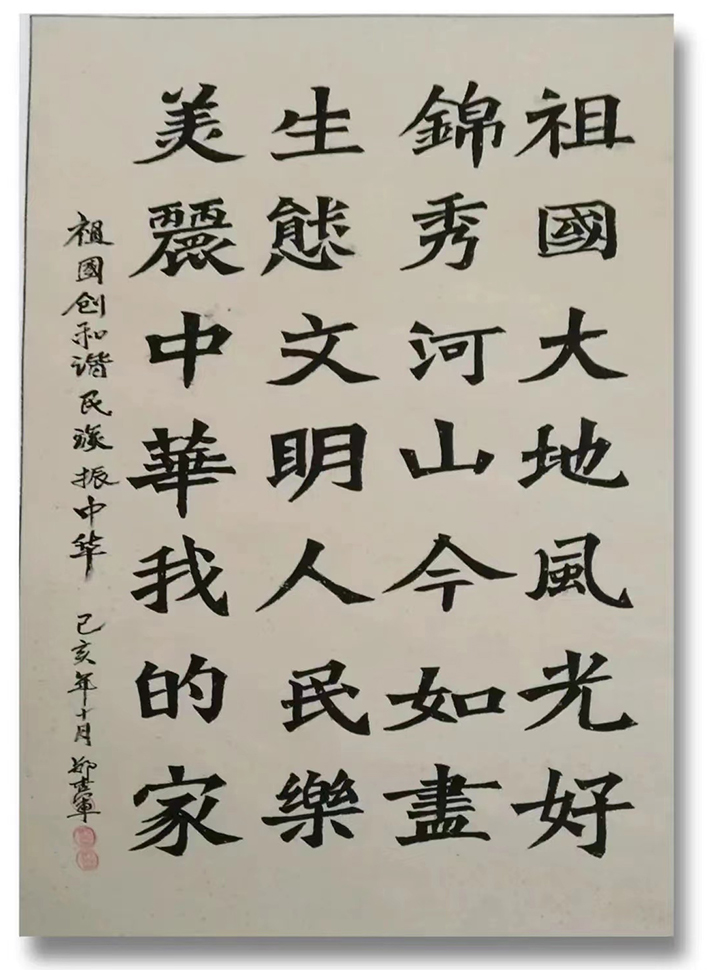 祖國大地風光好
錦秀河山今如盡
生態文明人民樂
美麗中華我的家
祖國创和谐民族振中华 己亥年十月